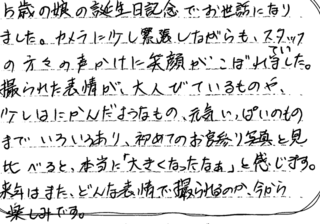 5歳の娘の誕生日記念でお世話になり
ました。カメラに少し緊張しながらも、スタッフ
の方々の声かけに笑顔がこぼれていました。
撮られた表情が、大人びているものや、
少しはにかんだようなもの、元気いっぱいのもの
までいろいろあり、初めてのお宮参り写真と見
比べると、本当に「大きくなったなぁ」と感じます。
来年はまた、どんな表情で撮られるのか、今から
楽しみです。